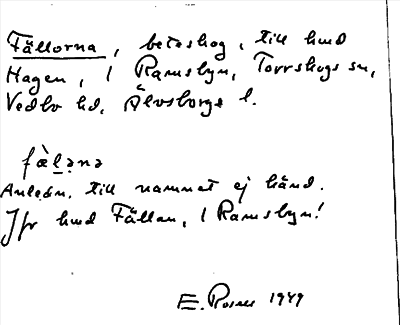 Fällorna, beteshag, till hmd
Hagen, i Ramsbyn, Torrskogs sn,
Vedbo hd, Älvsborgs l.
fàlənə
Anledn. till namnet ej känd.
Jfr hmd Fällan, i Ramsbyn!
E. Rosell 1949